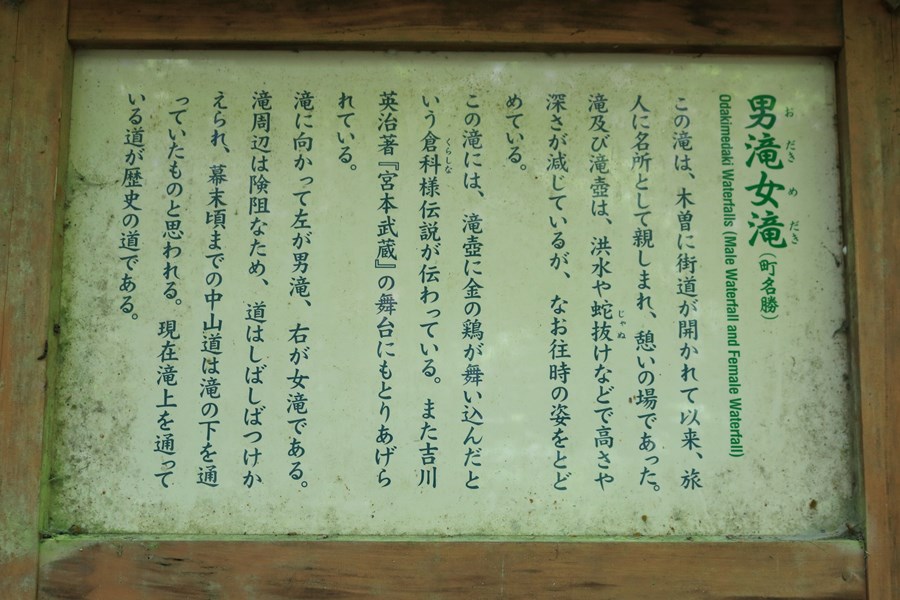 男滝女滝（町名勝）
おだきめだき
Odakimedaki Waterfalls (Male Waterfall and Female Waterfall)
この滝は、木曽に街道が開かれて以来、旅
人に名所として親しまれ、憩いの場であった。
滝及び滝壺は、洪水や蛇抜けなどで高さや
じゃぬ
深さが減じているが、なお往時の姿をとど
めている。
この滝には、滝壺に金の鶏が舞い込んだと
いう倉科様伝説が伝わっている。また吉川
くらしな
英治著『宮本武蔵』の舞台にもとりあげら
れている。
滝に向かって左が男滝、右が女滝である。
滝周辺は険阻なため、道はしばしばつけか
えられ、幕末頃までの中山道は滝の下を通
っていたものと思われる。現在滝上を通って
いる道が歴史の道である。